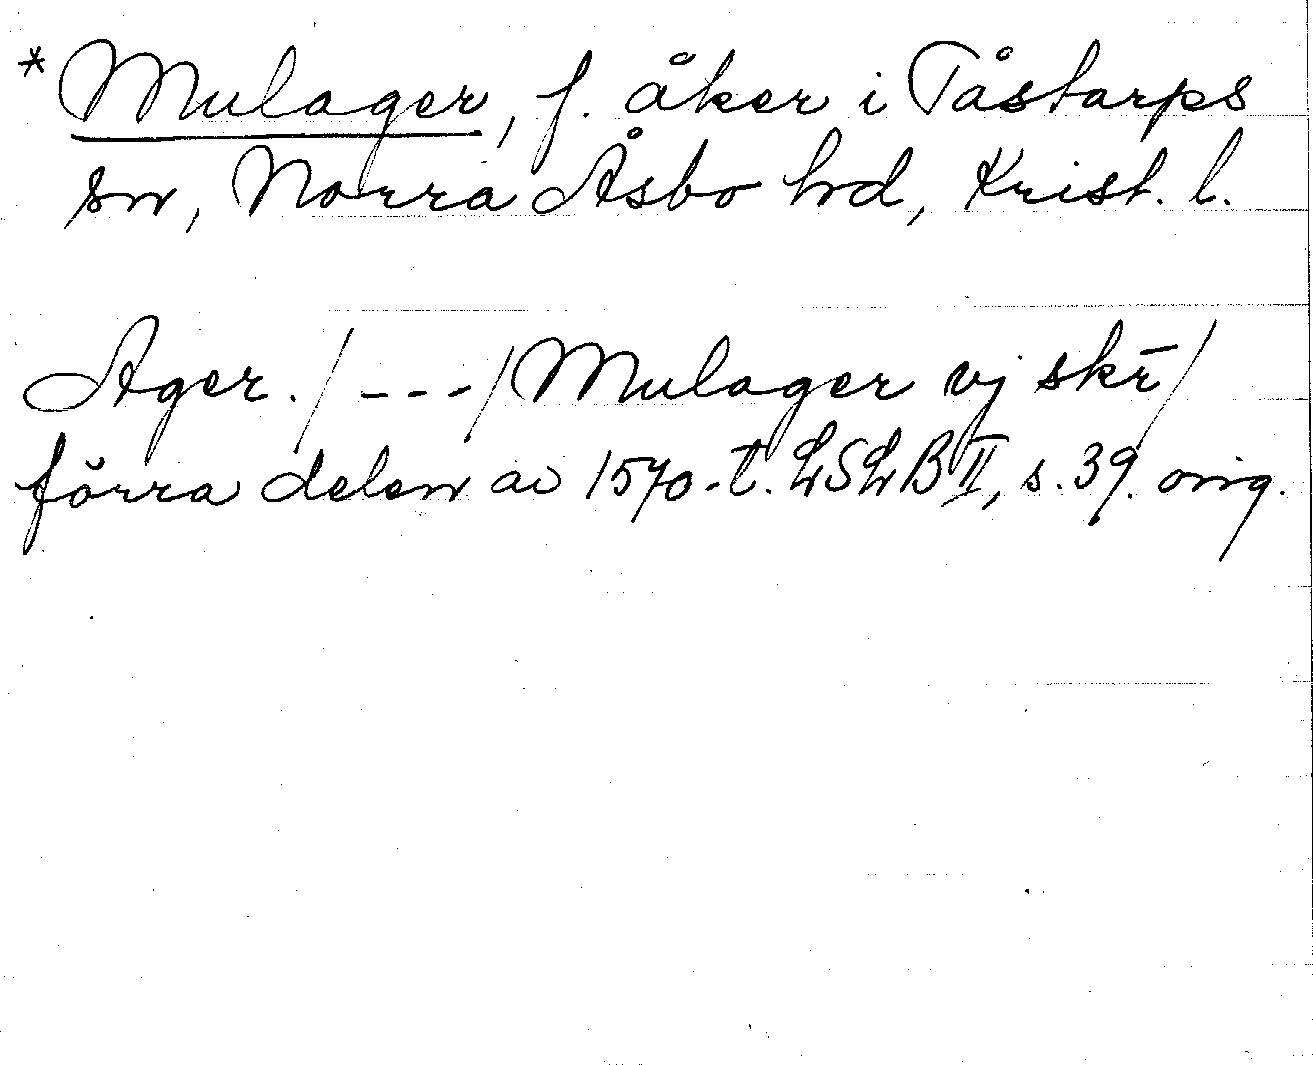 *Mulager, f. åker i Tåstarps
sn, Norra Åsbo hd, Krist. l.
Ager. /---/ Mulager vj skr̄/
förra delen av 1570-t. LSLB II, s. 39. orig.